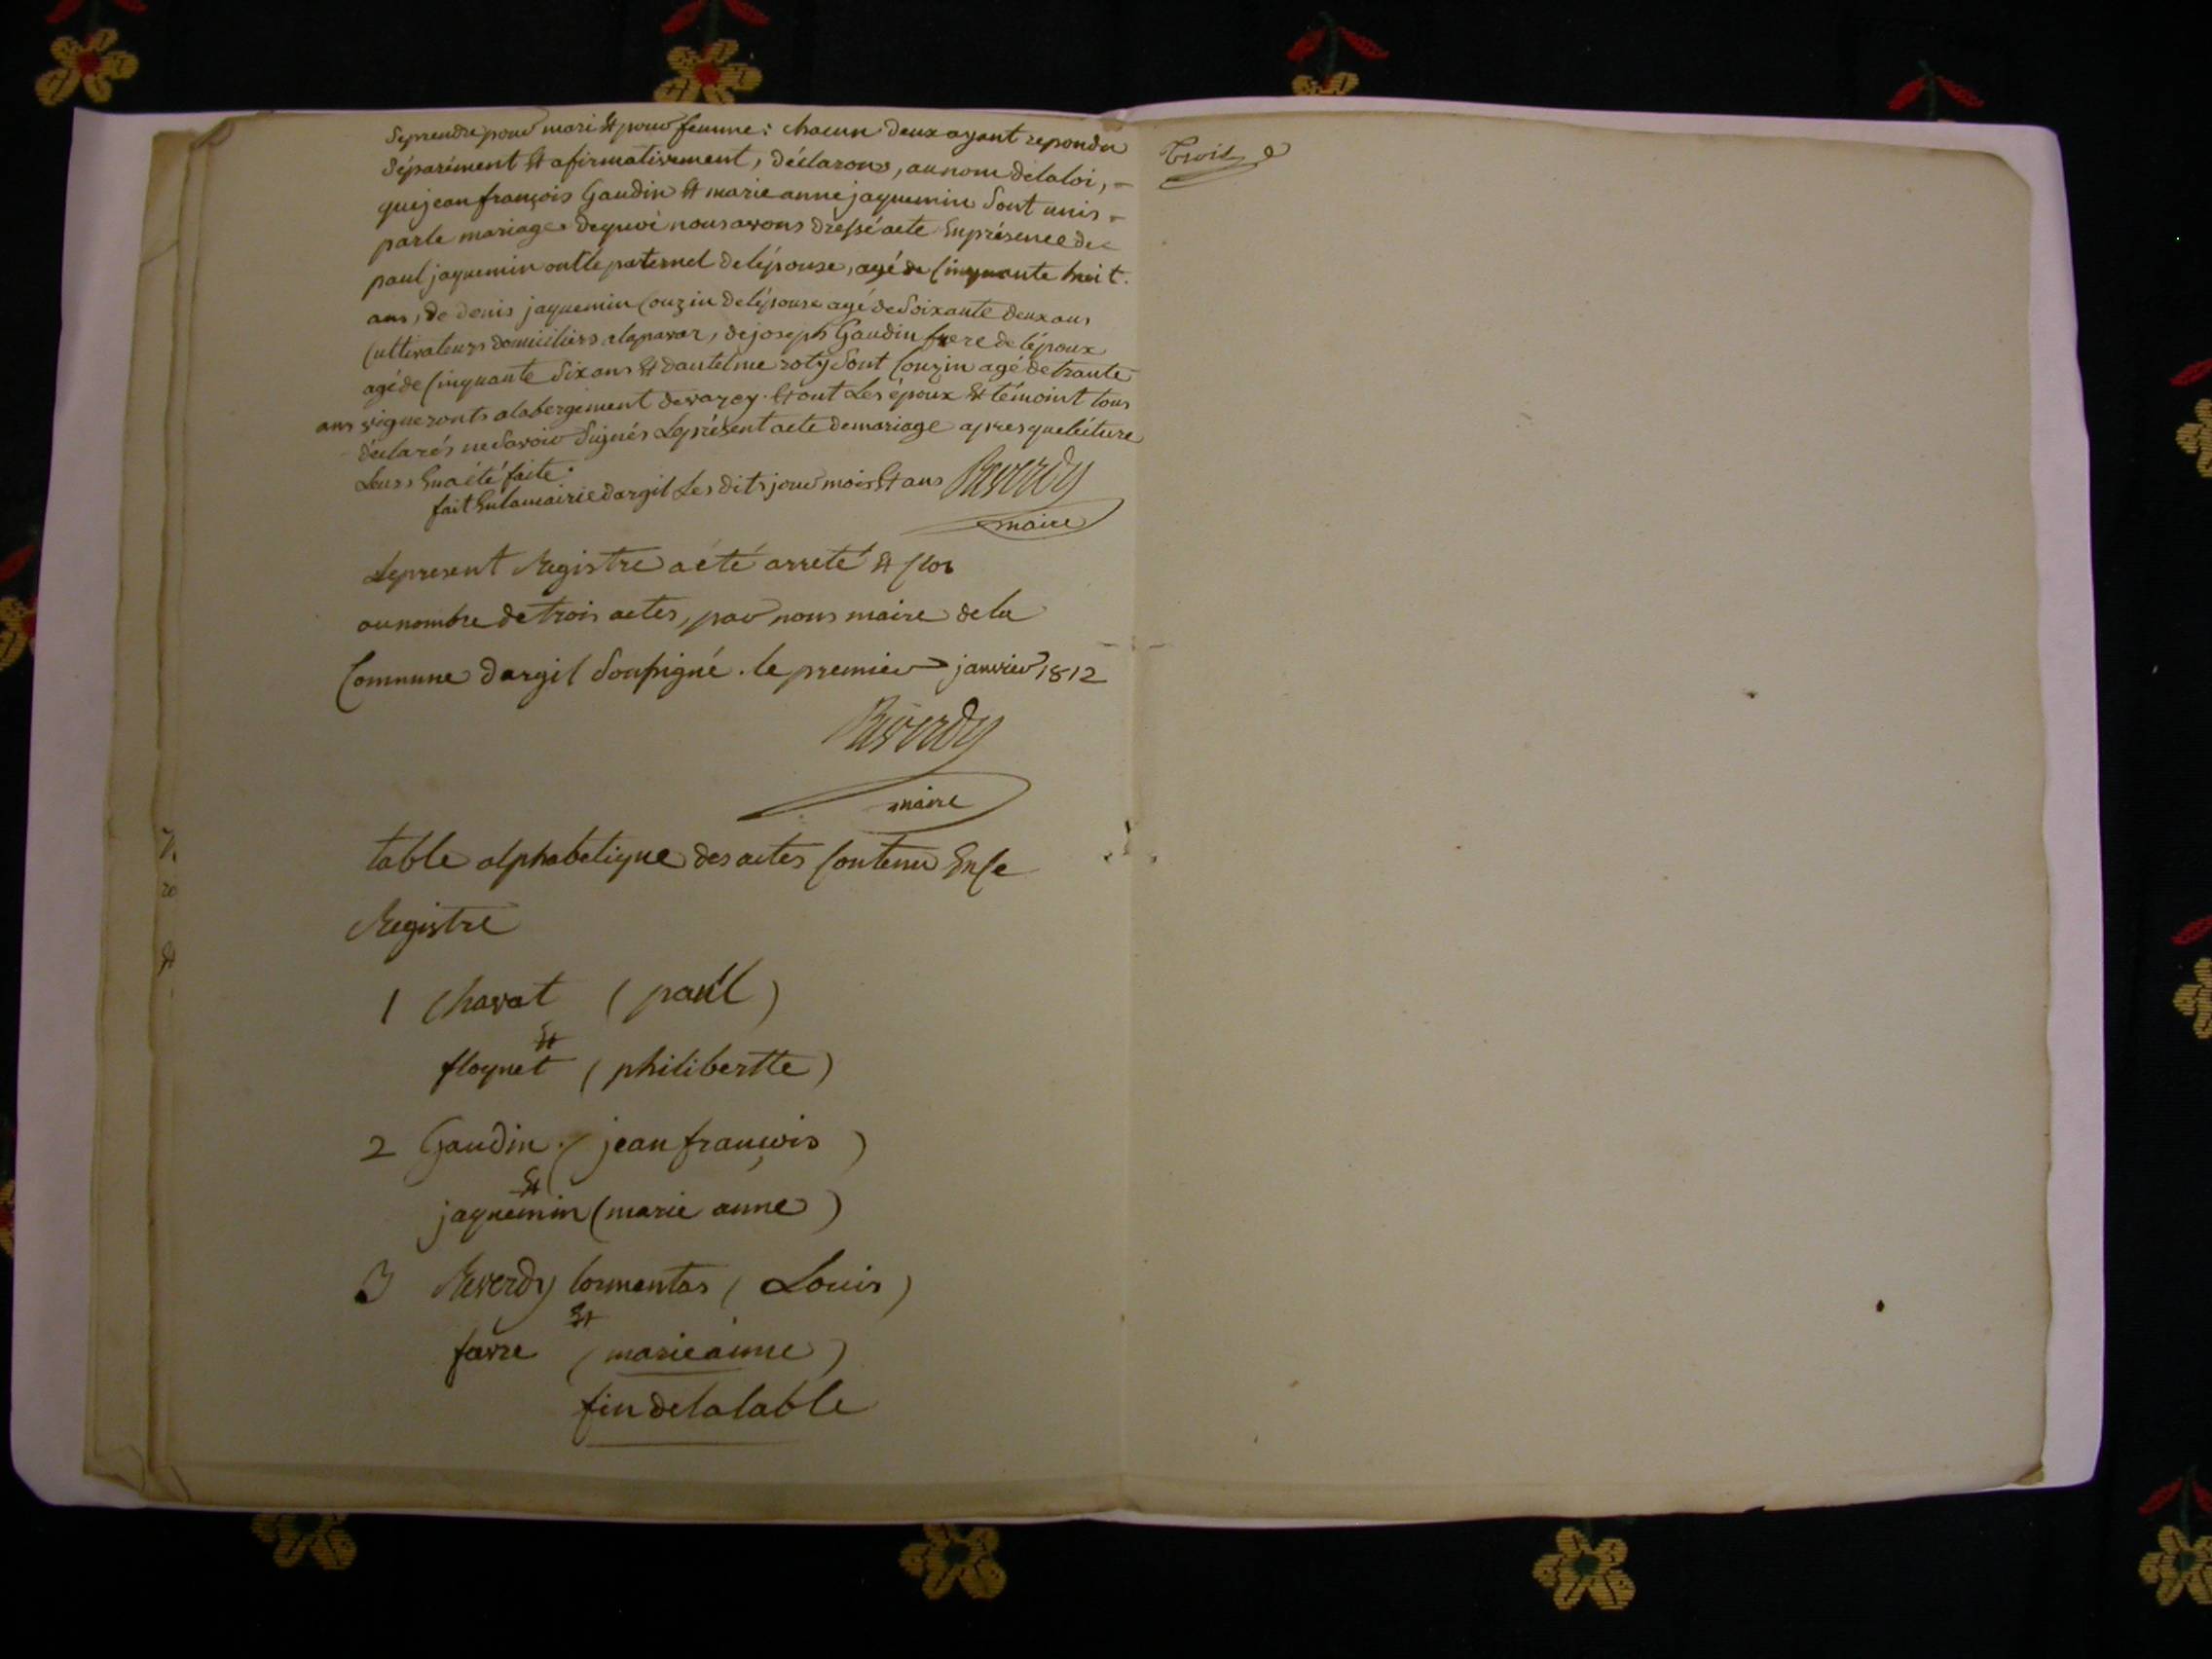 se prendre pour mari et pour femme: chacun deux ayant repondu
séparément et afirmativement, déclarons, au nom de la loi, =
que jean françois Gaudin et marie anne jaquemin sont unis =
par le mariage. de quoi nous avons dressé acte En présence de =
paul jaquemin oncle paternel de lépouse, agé de Cinquante huit.
ans, de denis jaquemin Couzin de lépouse agé de soixante deux ans
Cultivateurs domiciliers alaparar, de joseph Gaudin frere de lépoux
agé de Cinquante six ans et dantelme roty sont Couzin agé de trante
ans vigneronts alabergement devarey. Et ont Les époux et témoint tous
déclarés ne savoir signés Le présent acte de mariage apres que lécture
Leurs En a été faite.
fait En la mairie dargil Les dits jour mois et ans Reverdy
maire
Le present Registre a été arreté et Clos
au nombre de trois actes, par nous maire de la
Commune dargil soussigné. le premier janvier 1812
Reverdy
maire
table alphabetique des actes Contenu En Ce
Registre
1 Charat (paul)
et
floquet (philibertte)
2 Gaudin. (jean françois)
et
jaquemin (marie anne)
3 Reverdy tormentas (Louis)
et
favre (marie anne)
fin de la table
Trois